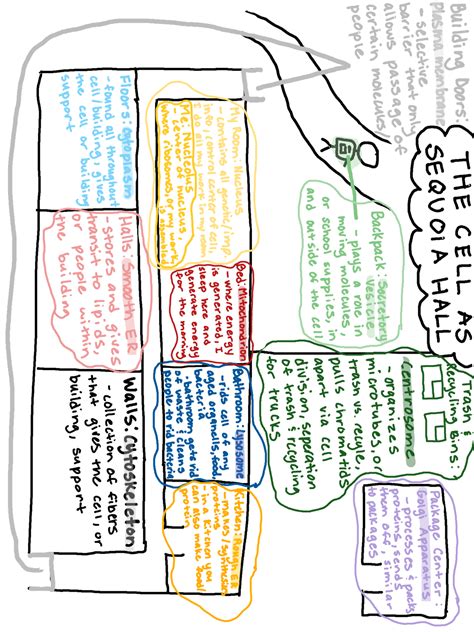 THE CELL AS
SEQUOIA HALL
Building Doors:
plasma membrane
- selective
barrier that only
allows passage of
certain molecules/
people
Backpack: Secretory
Vesicle
- plays a role in
moving molecules,
or school supplies, in
and outside of the cell
Trash &
Recycling Bins:
Centrosome
- organizes
microtubes, or
trash vs. recycle,
pulls chromatids
apart via cell
division, seperation
of trash & recycling
for trucks
Package Center:
Golgi Apparatus
- processes & packs
proteins, sends
them off, similar
to packages
My Room: Nucleus
- contains all genetic/imp.
info, control center of cell,
I do all my work in my room
Me: Nucleolus
- center of nucleus
where ribosomes, or my work,
Bed: Mitochondrion
- where energy
is generated, I
sleep here and
generate energy
for the morning
Bathroom: Lysosome
- rids cell of any
aged organells, food,
bacteria
- bathroom gets rid
of waste & cleans
people to rid bacteria
Kitchen: Rough ER
- makes/synthesizes
proteins
- in a kitchen you
can also make food/
proteins
Floors: Cytoplasm
- found all throughout
cell/building, gives
the cell or building
support
Halls: Smooth ER
- stores and gives
transit to lipids,
or people within
the building
Walls: Cytoskeleton
- collection of fibers
that gives the cell, or
building, support